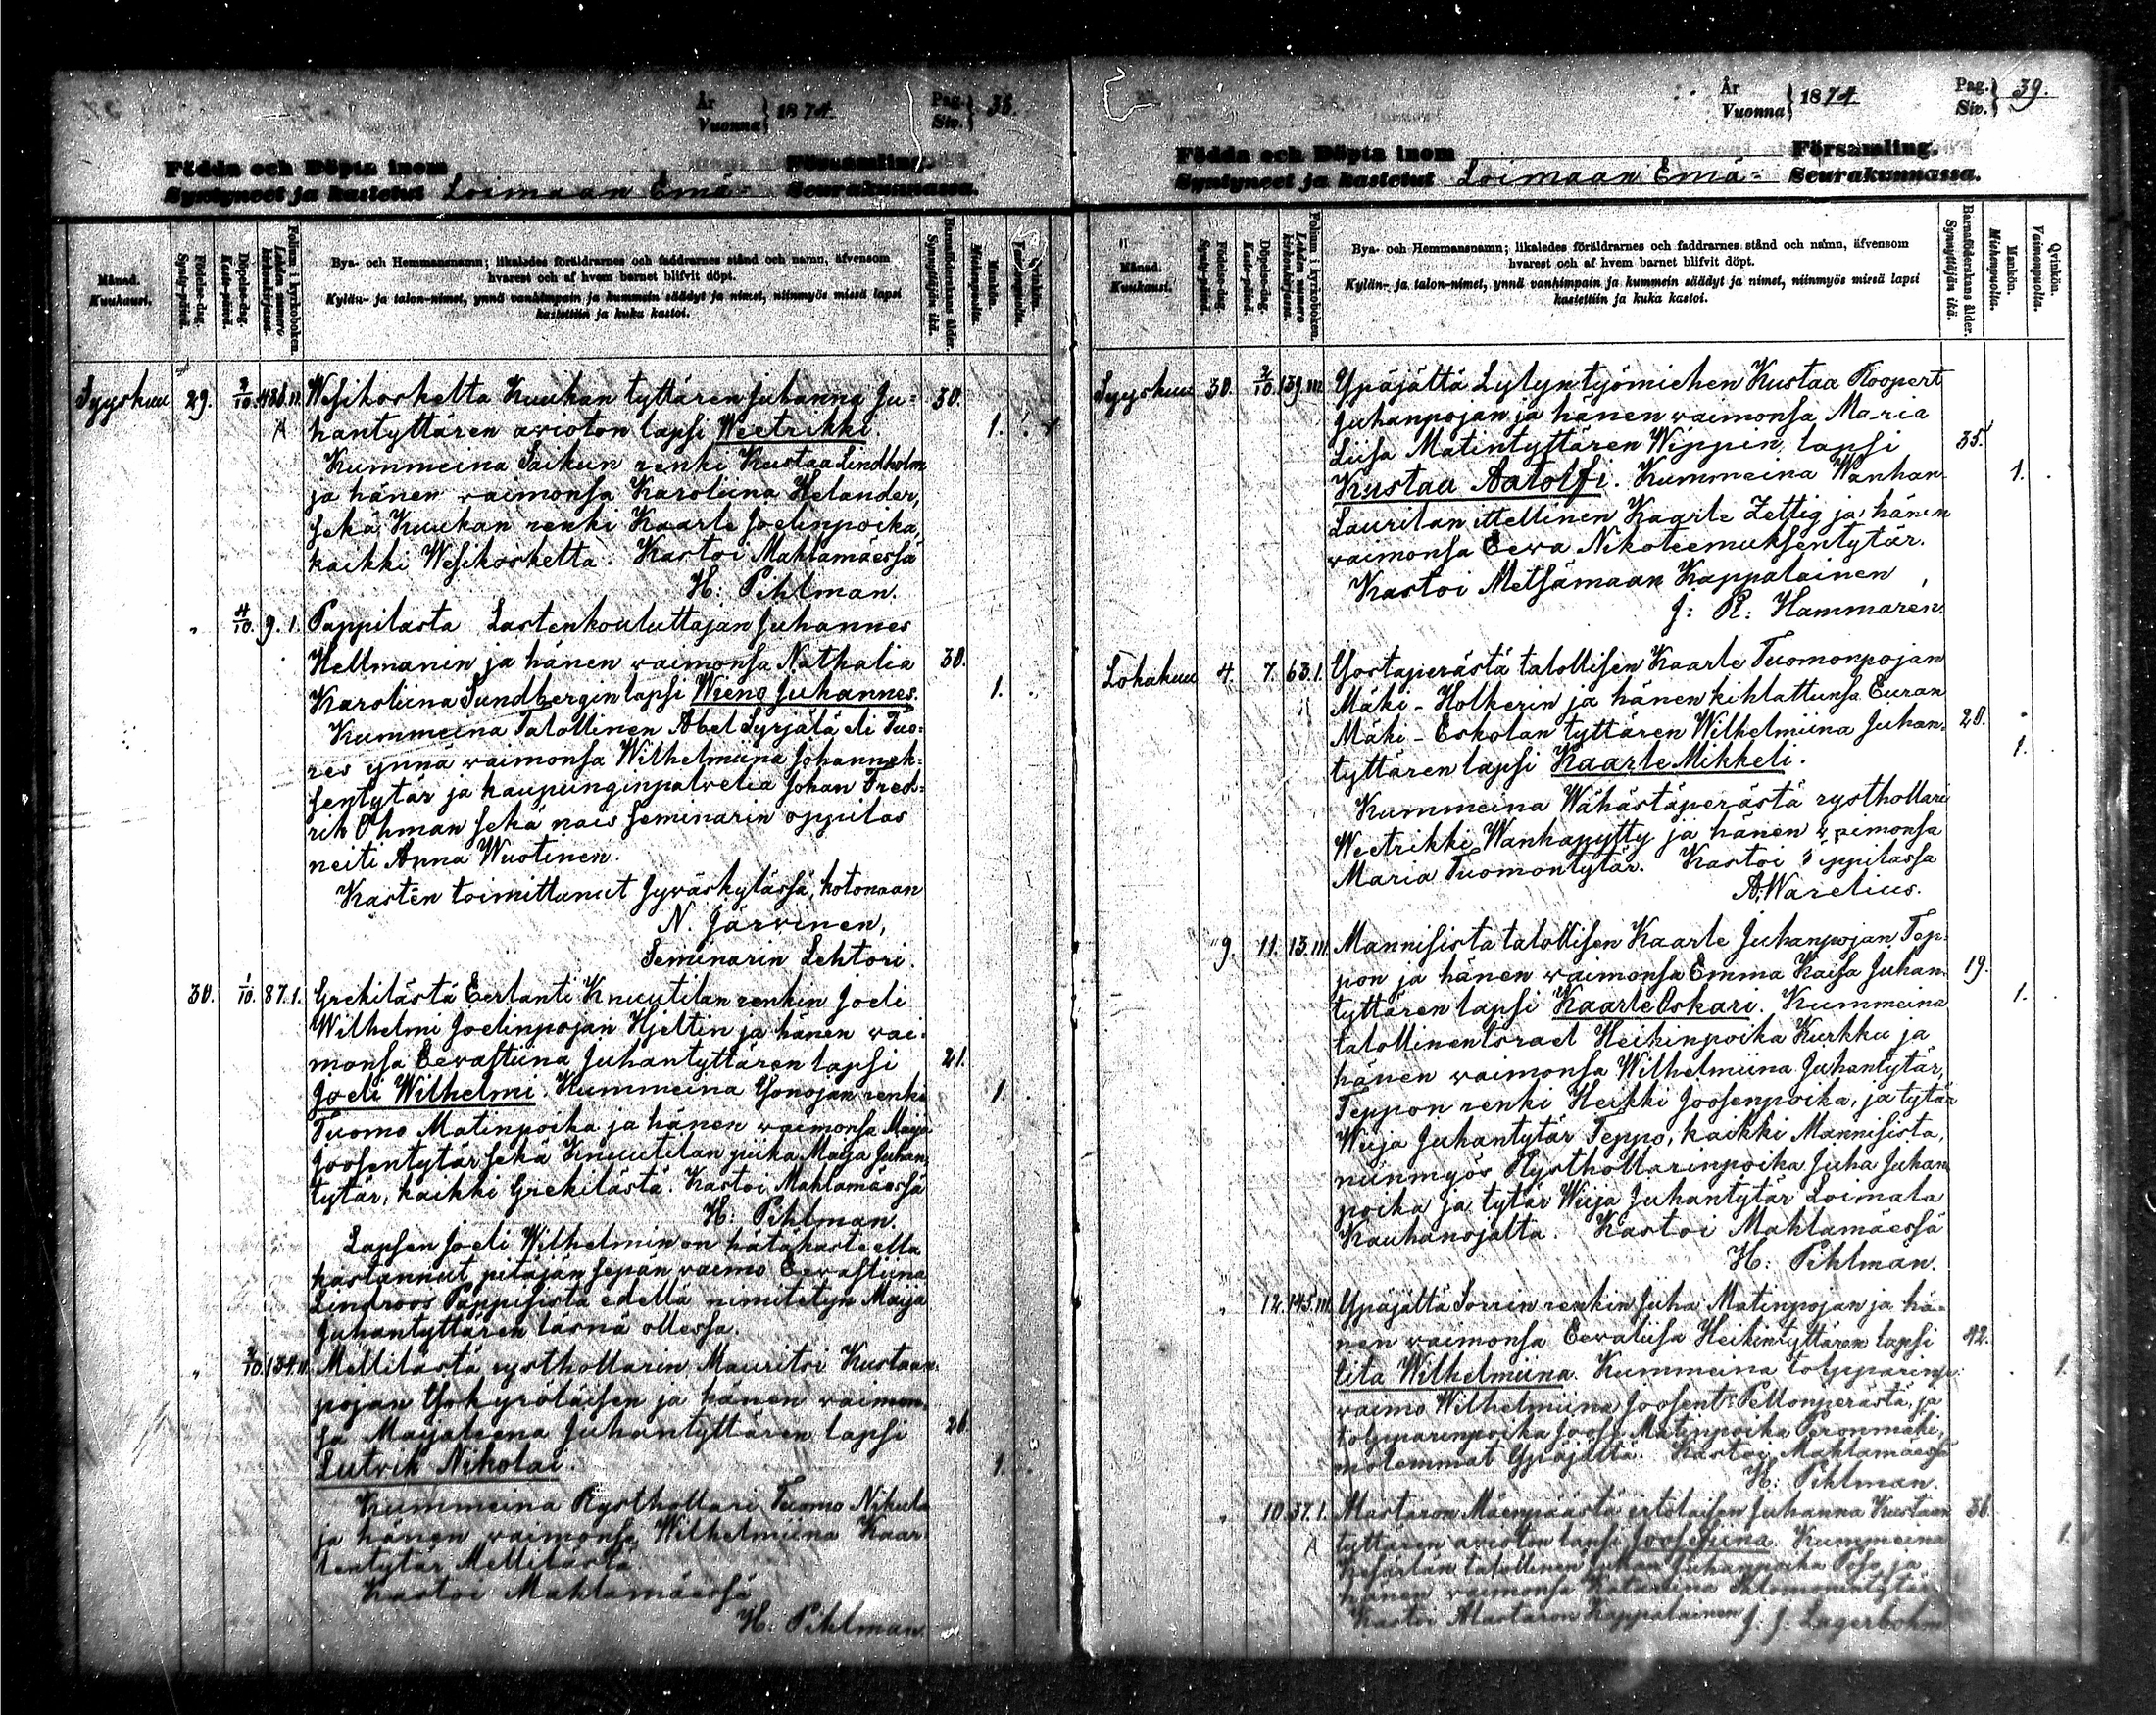 År
Vuonna } 1874.
Pag.
Siv. } 38.
Födda och Döpta inom Församling.
Syntyneet ja kastetut Loimaan Emä- Seurakunnassa.
Månad.
Kuukausi.
Födelse-dag.
Synty-päivä.
Döpelse-dag.
Kaste-päivä.
Folium i kyrkoboken.
Lehden numero kirkonkirjassa.
Bya- och Hemmansnamn; likaledes föräldrarnes och faddrarnes stånd och namn, äfvensom
hvarest och af hvem barnet blifvit döpt.
Kylän- ja talon-nimet, ynnä vanhimpain ja kummein säädyt ja nimet, niinmyös missä lapsi
kastettiin ja kuka kastoi.
Barnaföderskans ålder.
Synnyttäjän ikä.
Mankön.
Miehenpuolta.
Syyskuu 29. 2/10. Wesikoskelta Kuukan tyttären Juhanna Ju= 30.
hantyttären avioton lapsi Weetrikki. 1.
Kummeina Saikun renki Kustaa Lindholm
ja hänen waimonsa Karoliina Helander,
sekä Kuukan renki Kaarle Joelinpoika,
kaikki Wesikoskelta. Kastoi Mahlamäessä
H. Pihlman.
" 4/10. 9. 1. Pappilasta Lastenkouluttajan Juhannes
Hellmanin ja hänen waimonsa Nathalia 30.
Karoliina Sundbergin lapsi Wieno Juhannes. 1.
Kummeina Talollinen Abel Syrjälä eli Tuo=
res ynnä waimonsa Wilhelmiina Johannek=
sentytär ja kaupunginpalvelia Johan Fred=
rik Öhman sekä nais seminarin oppilas
neiti Anna Wuotinen.
Kasten toimittanut Jyväskylässä, kotonaan
N. Järvinen,
Seminarin Lehtori.
30. 1/10. 87.1. Grekilästä Eerlanti Knuutilan renkin Joeli
Wilhelmi Joelinpojan Hjeltin ja hänen wai=
monsa Eewastiina Juhantyttären lapsi 21.
Joeli Wilhelmi. Kummeina Yonojan renki 1.
Tuomo Matinpoika ja hänen waimonsa Maija
Joosentytär sekä Knuutilan piika Maija Juhan
tytär, kaikki Grekilästä. Kastoi Mahlamäessä
H. Pihlman.
Lapsen Joeli Wilhelmin on hätäkasteella
kastannut pitäjän sepän waimo Eewastiina
Lindroos Pappisista edellä nimitetyn Maija
Juhantyttären läsnä ollessa.
" 2/10. 134. Mellilästä rysthollarin Mauritsi Kustaan
pojan Isokyröläisen ja hänen waimon
sa Maijaleena Juhantyttären lapsi 26.
Lutvik Nikolai. 1.
Kummeina Rysthollari Tuomo Nikula
ja hänen waimonsa Wilhelmiina Kaar
lentytär Mellilästä
Kastoi Mahlamäessä
H. Pihlman.
År
Vuonna } 1874
Pag.
Siv. } 39.
Födda och Döpta inom Församling.
Syntyneet ja kastetut Loimaan Emä- Seurakunnassa.
Månad.
Kuukausi.
Födelse-dag.
Synty-päivä.
Döpelse-dag.
Kaste-päivä.
Folium i kyrkoboken.
Lehden numero kirkonkirjassa.
Bya- och Hemmansnamn; likaledes föräldrarnes och faddrarnes stånd och namn, äfvensom
hvarest och af hvem barnet blifvit döpt.
Kylän- ja talon-nimet, ynnä vanhimpain ja kummein säädyt ja nimet, niinmyös missä lapsi
kastettiin ja kuka kastoi.
Barnaföderskans ålder.
Synnyttäjän ikä.
Mankön.
Miehenpuolta.
Qvinkön.
Vaimonpuolta.
Syyskuu 30. 2/10. 139.III. Ypäjältä Lylyn työmiehen Kustaa Roopert
Juhanpojan ja hänen waimonsa Maria
Liisa Matintyttären Wippin, lapsi 35.
Kustaa Aatolfi. Kummeina Wanhan 1.
Laurilan itellinen Kaarle Zettig ja hänen
waimonsa Eewa Nikoteemuksentytär.
Kastoi Metsämaan Kappalainen
J: R: Hammarén.
Lokakuu 4. 7. 63.1. Yostaperästä talollisen Kaarle Tuomonpojan
Mäki-Holkerin ja hänen kihlattunsa Euran
Mäki-Eskolan tyttären Wilhelmiina Juhan= 20.
tyttären lapsi Kaarle Mikkeli. 1.
Kummeina Wähästäperästä rysthollari
Weetrikki Wanhapytty ja hänen waimonsa
Maria Tuomontytär. Kastoi Pappilassa
A. Warelius.
" 9. 11. 13.III. Mannisista talollisen Kaarle Juhanpojan Tep=
pon ja hänen waimonsa Emma Kaisa Juhan= 19.
tyttären lapsi Kaarle Oskari. Kummeina 1.
talollinen Israel Heikinpoika Kurkku ja
hänen waimonsa Wilhelmiina Juhantytär,
Teppon renki Heikki Joosenpoika, ja tytär
Wiija Juhantytär Teppo, kaikki Mannisista,
niinmyös Rysthollarinpoika Juha Juhan
poika ja tytär Wiija Juhantytär Loimala
Kauhanojalta. Kastoi Mahlamäessä
H: Pihlman.
" 12. 145.III. Ypäjältä Sorrin renkin Juha Matinpojan ja hä=
nen waimonsa Eewaliisa Heikintyttären lapsi 42.
Iita Wilhelmiina. Kummeina tolpparin 1.
waimo Wilhelmiina Joosent: Peltonperästä, ja
tolpparinpoika Joose Matinpoika Peronmäki,
molemmat Ypäjältä. Kastoi Mahlamäessä
H: Pihlman.
" 10. 37.1. Alastaron Mäenpäästä Juhanna Kustaan 36.
tyttären avioton lapsi Joosefiina. Kummeina 1.
talollinen Juhan Juhanpoika ja
hänen waimonsa Katariina Salomonintytär
Kastoi Alastaron Kappalainen J. J. Lagerbohm